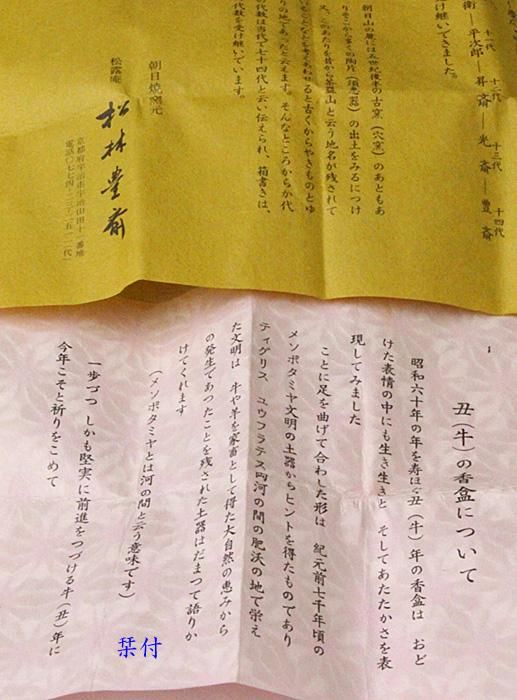 十一代
衛―平次郎―
十二代
昇斎―
十三代
光斎―
十四代
豊斎
いできました。
朝日山の麓には五世紀後半の古窯(穴窯)のあともあ
りそこから多くの陶片(須恵器)の出土をみるにつけ
又、このあたりを昔から茶碗山と云う地名が残されて
ると古くからやきものとゆ
りの地であったと云えます。そんなところからか代
代数は当代で七十四代と云い伝えられ、箱書きは、
代数を受け継いでいます。
朝日焼窯元
松露庵
松林豊斎
京都府宇治市宇治山田十一番地
丑(牛)の香盒について
昭和六十年の年を寿ほぐ丑(牛)年の香盒は おど
けた表情の中にも生き生きと そしてあたたかさを表
現してみました
ことに足を曲げて合わした形は 紀元前七千年頃の
メソポタミヤ文明の土器からヒントを得たものであり
ティグリス ユウフラテス両河の間の肥沃の地で栄え
た文明は 牛や羊を家畜として得た大自然の恵みから
の発生であったことを残された土器はだまつて語りか
けてくれます
(メソポタミヤとは河の間と云う意味です)
一歩づつ しかも堅実に前進をつづける牛(丑)年に
今年こそと祈りをこめて
栞付